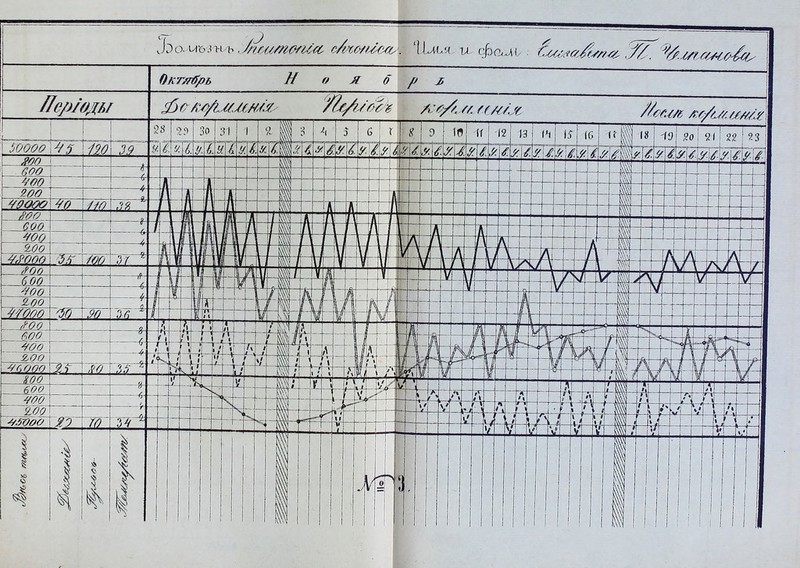 Болѣзнь Pneumonia chronica. Имя и фам: Елизавета П. Чепанова
Октябрь Ноябрь
Періоды До кормленія Періодъ кормленія Послѣ кормленія
28 29 30 31 1 2 3 4 5 6 7 8 9 10 11 12 13 14 15 16 17 18 19 20 21 22 23
50000 45 120 39 у. в. у. в. у. в. у. в. у. в. у. в. у. в. у. в. у. в. у. в. у. в. у. в. у. в. у. в. у. в. у. в. у. в. у. в. у. в. у. в. у. в. у. в. у. в. у. в. у. в. у. в. у. в.
800 8
600 6
400 4
200 2
49000 40 110 38
800 8
600 6
400 4
200 2
48000 35 100 37
800 8
600 6
400 4
200 2
47000 30 90 36
800 8
600 6
400 4
200 2
46000 25 80 35
800 8
600 6
400 4
200 2
45000 20 70 34
Вѣсъ тѣла
Дыханіе
Пульсъ
Температ.
№ 3.